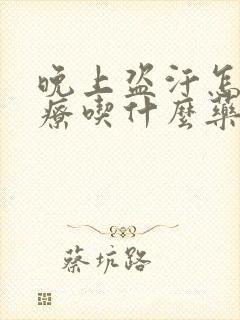 晚上盗汗怎
療喫什麼藥
蔡坑路